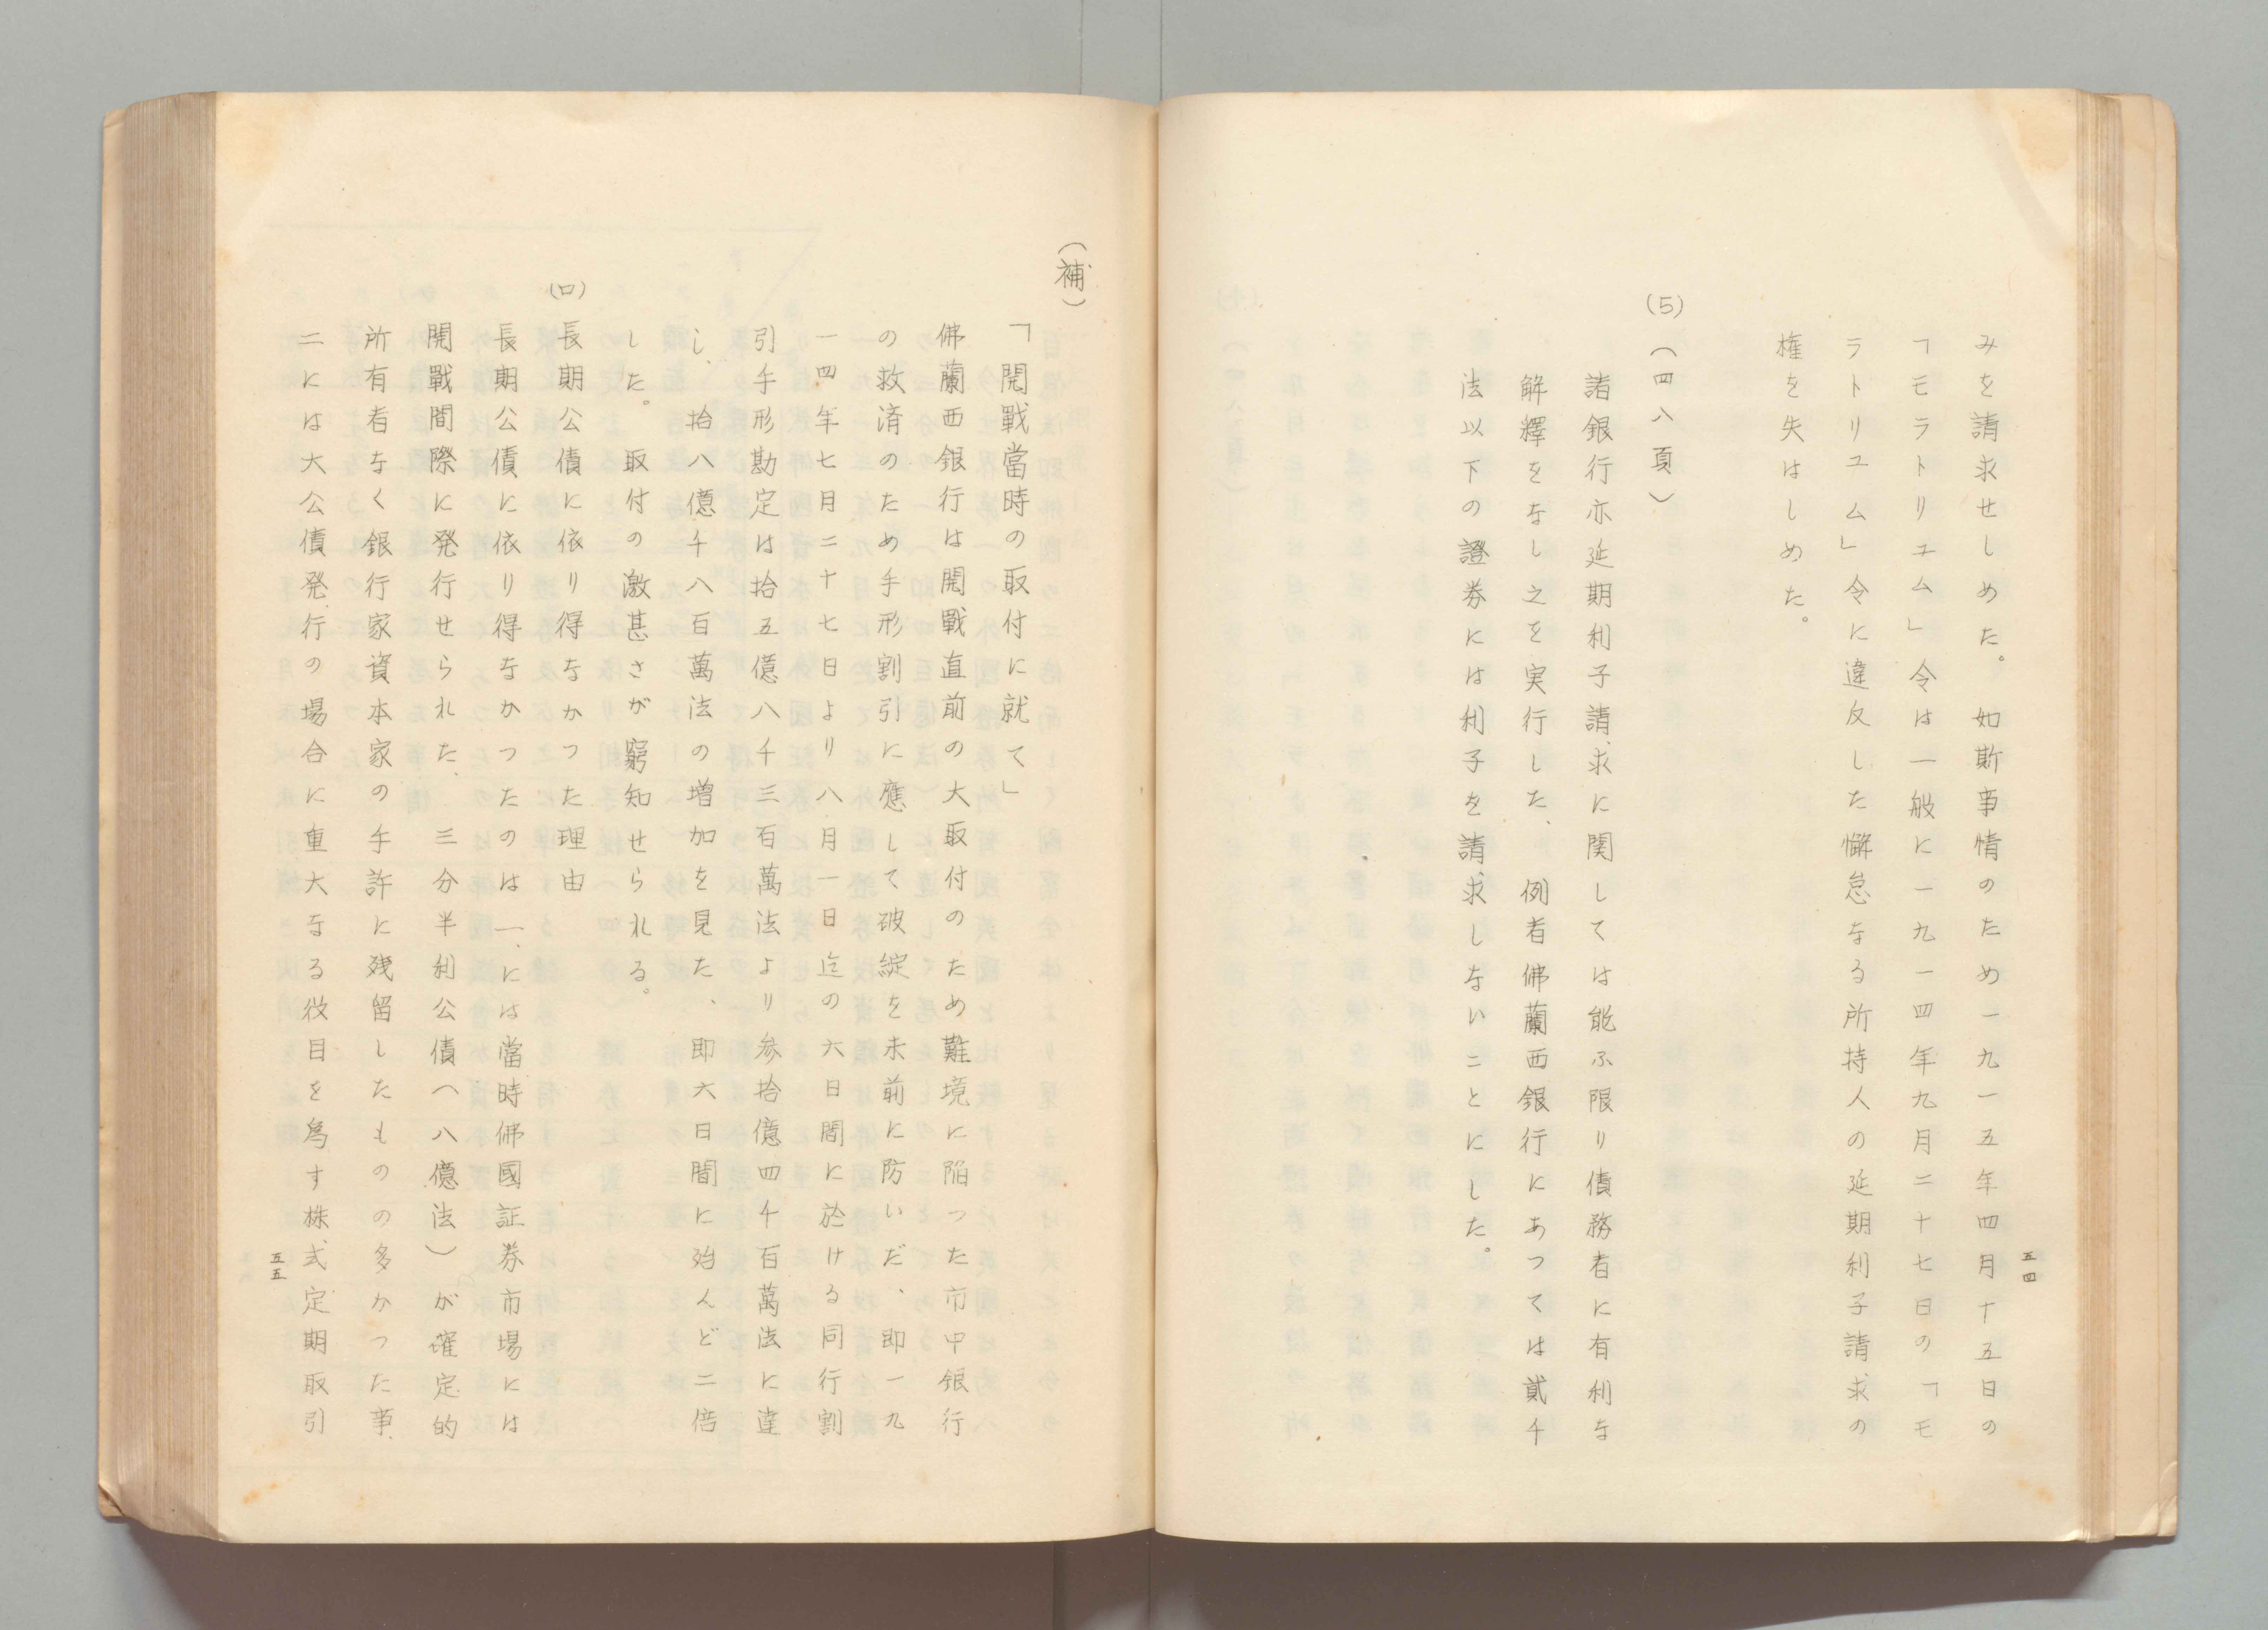 みを請求せしめた。　如斯事情のため一九一五年四月十五日の
「モラトリユム」令は一般に一九一四年九月二十七日の「モ
ラトリユム」令に違反した懈怠なる所持人の延期利子請求の
権を失はしめた。
(5)
（四八頁）
諸銀行亦延期利子請求に関しては能ふ限り債務者に有利な
解釋をなし之を実行した、　例者佛蘭西銀行にあつては貳千
法以下の證券には利子を請求しないことにした。
五四
（補）
「開戰當時の取付に就て」
佛蘭西銀行は開戰直前の大取付のため難境に陥った市中銀行
の救済のため手形割引に應して破綻を未前に防いだ、即一九
一四年七月二十七日より八月一日迄の六日間に於ける同行割
引手形勘定は拾五億八千三百萬法より参拾億四千百萬法に達
し、拾八億千八百萬法の増加を見た、即六日間に殆んど二倍
した。　取付の激甚さが窮知せられる。
(ロ)
長期公債に依り得なかつた理由
長期公債に依り得なかつたのは一、には當時佛國証券市場には
開戰間際に発行せられた、三分半利公債（八億法）が確定的
所有者なく銀行家資本家の手許に残留したものの多かつた事
二には大公債発行の場合に重大なる役目を爲す株式定期取引
五五